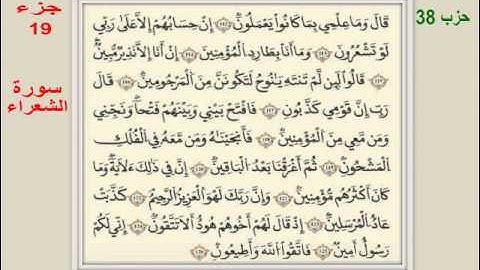 جزء
19
حزب 38
سورة
الشعراء
قَالَ وَمَا عِلْمِي بِمَا كَانُوا يَعْمَلُونَ ١١٢ إِنْ حِسَابُهُمْ إِلَّا عَلَىٰ رَبِّي
لَوْ تَشْعُرُونَ ١١٣ وَمَا أَنَا بِطَارِدِ الْمُؤْمِنِينَ ١١٤ إِنْ أَنَا إِلَّا نَذِيرٌ مُّبِينٌ
١١٥ قَالُوا لَئِن لَّمْ تَنتَهِ يَا نُوحُ لَتَكُونَنَّ مِنَ الْمَرْجُومِينَ ١١٦ قَالَ
رَبِّ إِنَّ قَوْمِي كَذَّبُونِ ١١٧ فَافْتَحْ بَيْنِي وَبَيْنَهُمْ فَتْحًا وَنَجِّنِي
وَمَن مَّعِيَ مِنَ الْمُؤْمِنِينَ ١١٨ فَأَنجَيْنَاهُ وَمَن مَّعَهُ فِي الْفُلْكِ
الْمَشْحُونِ ١١٩ ثُمَّ أَغْرَقْنَا بَعْدُ الْبَاقِينَ ١٢٠ إِنَّ فِي ذَٰلِكَ لَآيَةً وَمَا
كَانَ أَكْثَرُهُم مُّؤْمِنِينَ ١٢١ وَإِنَّ رَبَّكَ لَهُوَ الْعَزِيزُ الرَّحِيمُ ١٢٢ كَذَّبَتْ
عَادٌ الْمُرْسَلِينَ ١٢٣ إِذْ قَالَ لَهُمْ أَخُوهُمْ هُودٌ أَلَا تَتَّقُونَ ١٢٤ إِنِّي لَكُمْ
رَسُولٌ أَمِينٌ ١٢٥ فَاتَّقُوا اللَّهَ وَأَطِيعُونِ ١٢٦